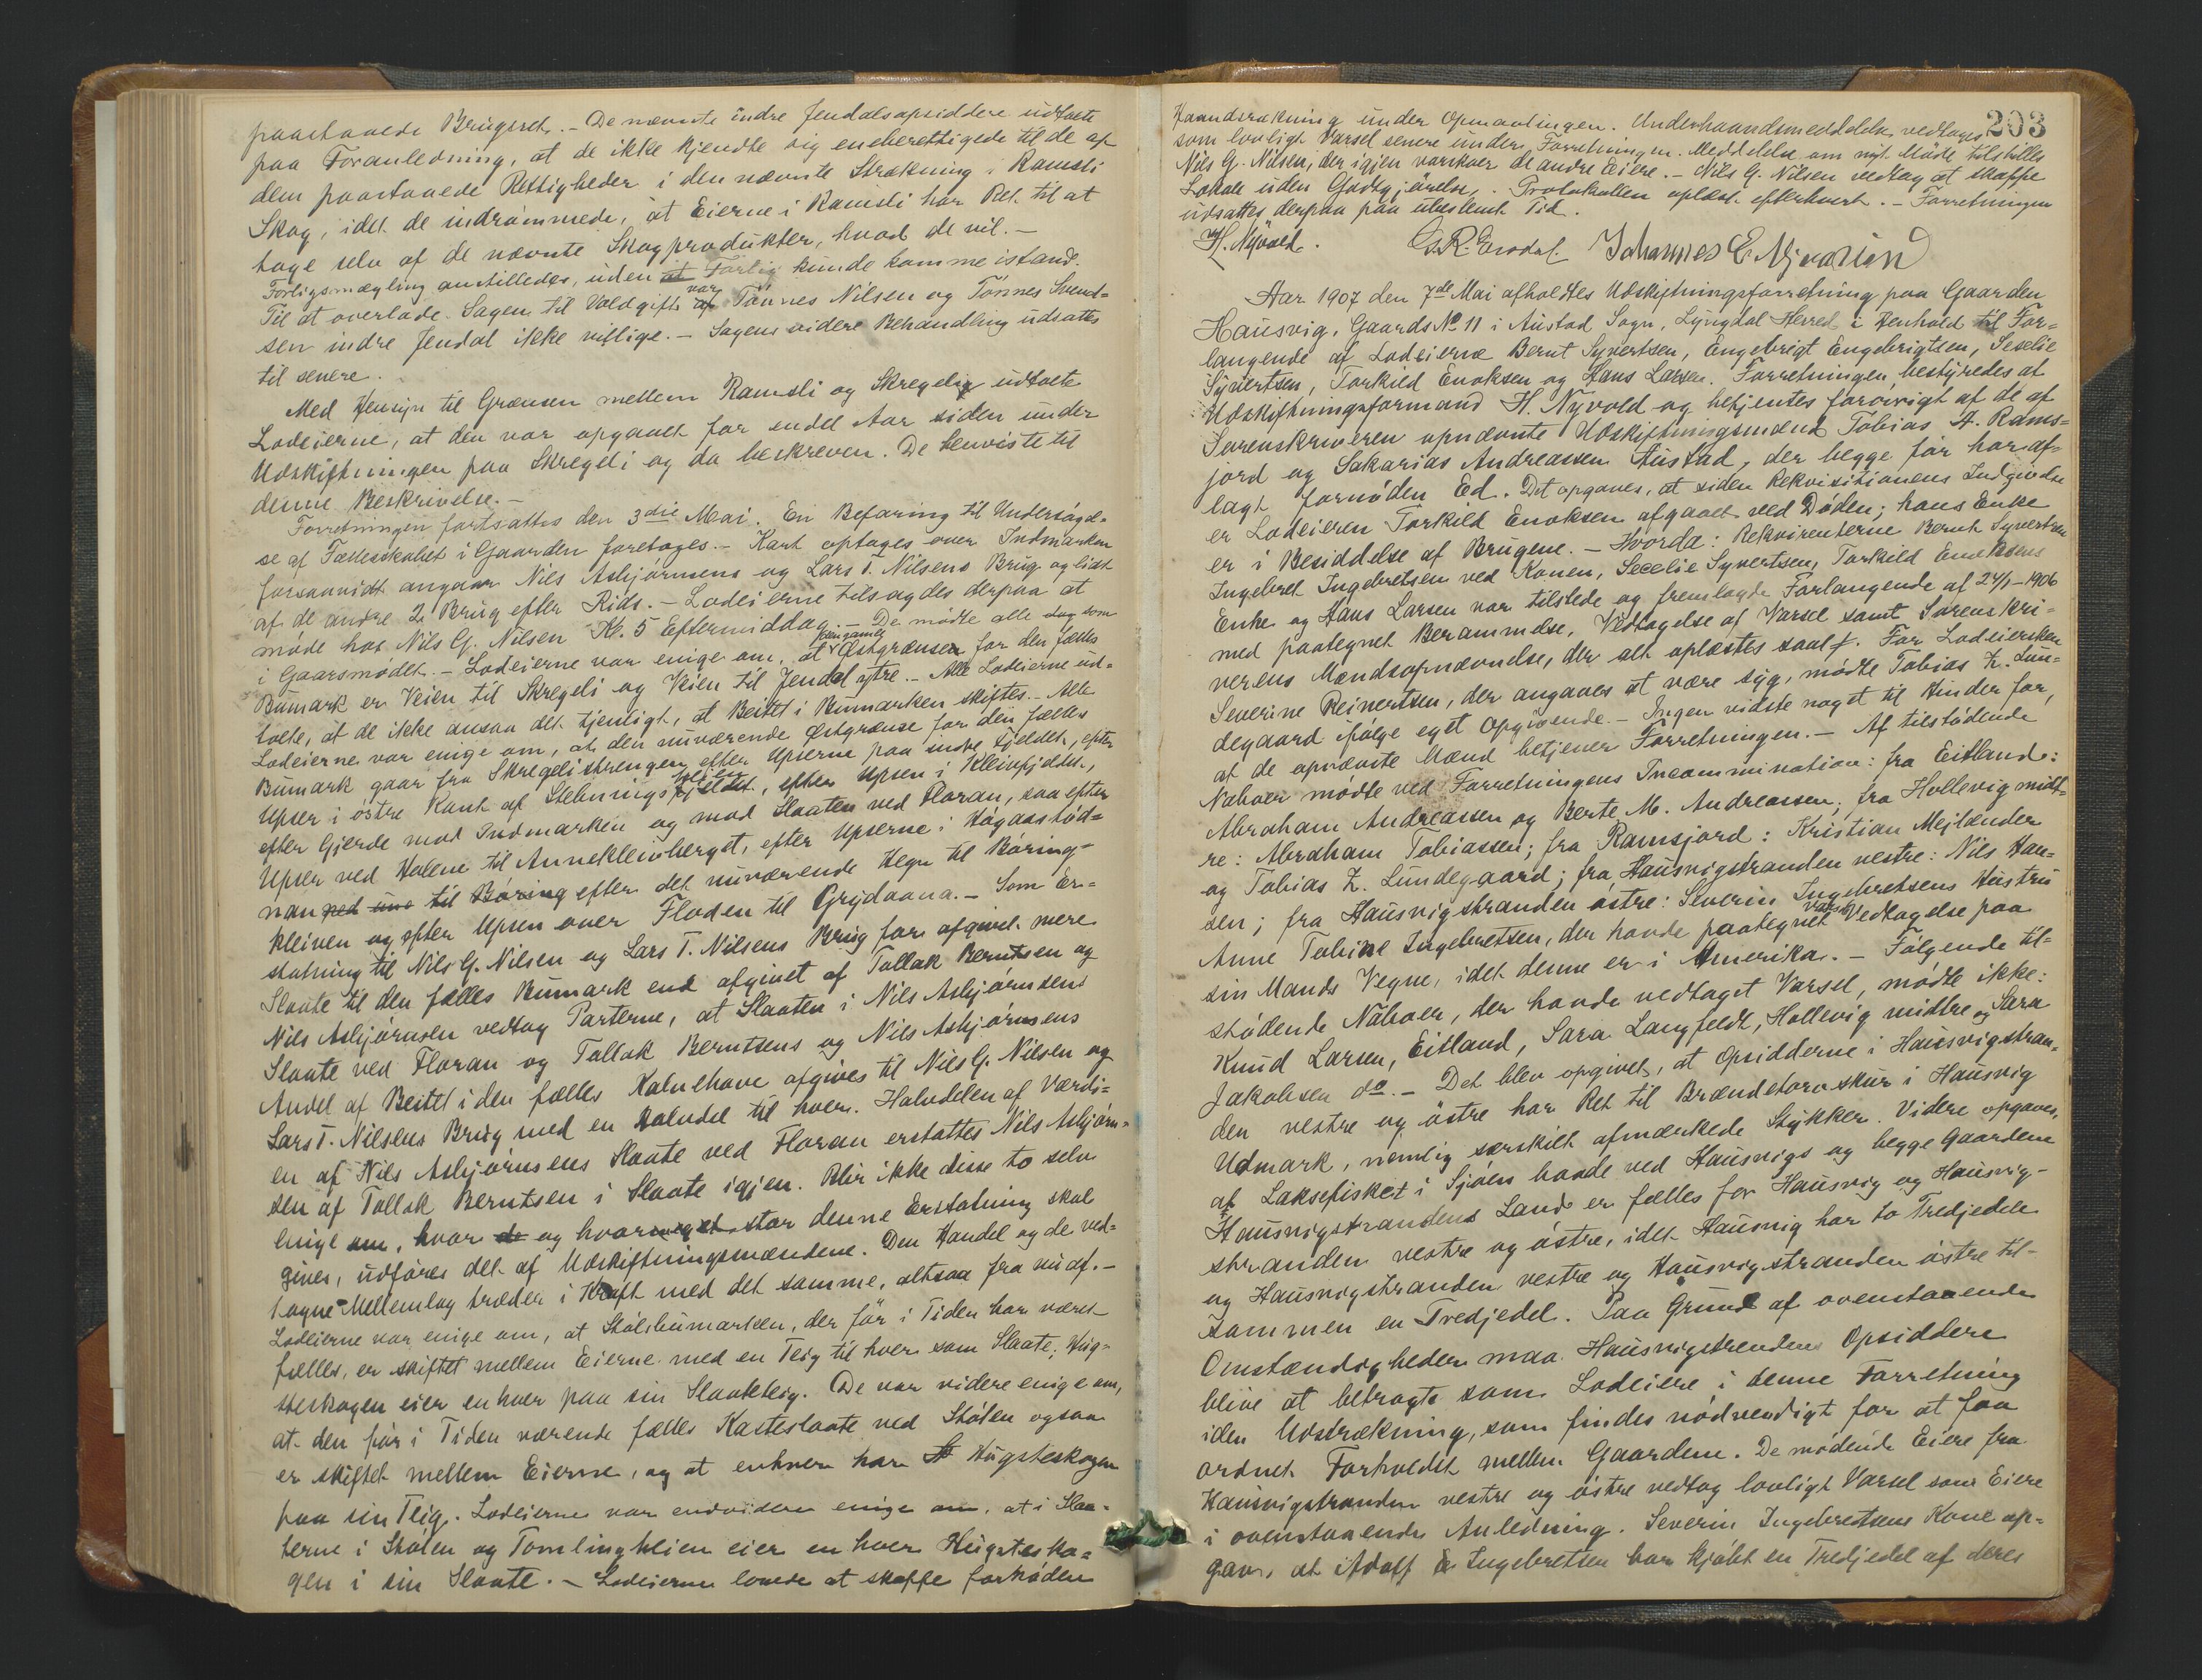 paastaaede Brugsret. – De nævnte indre Jendalsopsiddere udtalte
paa Foranledning, at de ikke kjendte sig eneberettigede til de af
dem paastaaede Rettigheder i den nævnte Strækning i Ramsli
Skog, idet de indrømmede, at Eierne i Ramsli har Ret til at
tage selv af de nævnte Skogprodukter, hvad de vil. –
Forligsmægling anstilledes, uden at Forlig kunde komme istand.
Til at overlade Sagen til Voldgift var Tønnes Nilsen og Tønnes Svend=
sen indre Jendal ikke villige. – Sagens videre Behandling udsattes
til senere.
Med Hensyn til Grænsen mellem Ramsli og Skregeli udtalte
Lodeierne, at den var opgaaet for endel Aar siden under
Udskiftningen paa Skregeli og da beskreven. De henviste til
denne Beskrivelse. –
Forretningen fortsattes den 3die Mai. En Befaring til Undersøgel=
se af Fællesskabet i Gaarden foretoges. – Kart optages over Indmarken
forsaavidt angaar Nils Asbjørnsens og Lars T. Nilsens Brug og lidt
af de andre 2 Brug efter Rids. – Lodeierne tilsagdes derpaa at
møde hos Nils G. Nilsen Kl. 5 Eftermiddag. – De mødte alle som
i Gaarsmødet. – Lodeierne var enige om, at den gamle Østgrænse for den fælles
Bumark er Veien til Skregeli og Veien til Jendal ytre. – Alle Lodeierne ud=
talte, at de ikke ansaa det tjenligt, at Beitet i Bumarken skiftes. – Alle
Lodeierne var enige om, at den nuværende Østgrænse for den fælles
Bumark gaar fra Skregelistrengen efter Upserne paa indre Fjeldet, efter
Upser i østre Kant af Stebningsheien, efter Upsen i Kleivfjeldet,
efter Gjerde mod Indmarken og mod Slaaten ved Floran, saa efter
Upser ved Halene til Annekleivberget, efter Upserne i Høgaasstød=
nan ned une til Børing efter det nuværende Hegn til Børing=
kleiven og efter Upsen over Floden til Grydaana. – Som Er=
statning til Nils G. Nilsen og Lars T. Nilsens Brug for afgivet mere
Slaate til den fælles Bumark end afgivet af Tollak Berntsen og
Nils Asbjørnsen vedtog Parterne, at Slaaten i Nils Asbjørnsens
Slaate ved Floran og Tollak Berntsens og Nils Asbjørnsens
Andel af Beitet i den fælles Kalvehave afgives til Nils G. Nilsen og
Lars T. Nilsens Brug med en Halvdel til hver. Halvdelen af Værdi=
en af Nils Asbjørnsens Slaate ved Floran erstattes Nils Asbjørn=
sen af Tollak Berntsen i Slaate igjen. Blir ikke disse to selv
enige om, hvor de og hvor meget stor denne Erstatning skal
gives, udføres det af Udskiftningsmændene. Den Handel og de ved=
tagne Mellemlag træder i Kraft med det samme, altsaa fra nu af. –
Lodeierne var enige om, at Stølsbumarken, der før i Tiden har været
fælles, er skiftet mellem Eierne med en Teig til hver som Slaate; Hug=
sterskogen eier enhver paa sin Slaateteig. De var videre enige om,
at den før i Tiden værende fælles Kasteslaate ved Stølen ogsaa
er skiftet mellem Eierne, og at enhver har Hugsteskogen
paa sin Teig. Lodeierne var endvidere enige om, at i Slaa=
terne i Stølen og Tomlingheien eier en hver Hugstesko=
gen i sin Slaate. – Lodeierne lovede at skaffe fornøden
203
Haandsrækning under Opmaalingen. Underhaandsmeddelelse vedtages
som lovligt Varsel senere under Forretningen. Meddelelse om nyt Møde tilstilles
Nils G. Nilsen, der igjen varskoer de andre Eiere. – Nils G. Nilsen vedtog at skaffe
Lokale uden Godtgjørelse. Protokollen oplæst efterhvert. – Forretningen
udsattes derpaa paa ubestemt Tid.
H. Nyvold. G. R. Ersdal. Johannes E.
Aar 1907 den 7de Mai afholdtes Udskiftningsforretning paa Gaarden
Hausvig, Gaards No 11 i Austad Sogn, Lyngdal Herred i Henhold til For=
langende af Lodeierne Bernt Syvertsen, Engebrigt Engebrigtsen, Seselie
Syvertsen, Torkild Enoksen og Hans Larsen. Forretningen bestyredes af
Udskiftningsformand H. Nyvold og betjentes forøvrigt af de af
Sorenskriveren opnævnte Udskiftningsmænd Tobias A. Rams=
jord og Sakarias Andreassen Austad, der begge før har af=
lagt fornøden Ed. Det opgaves, at siden Rekvisitionens Indgivelse
er Lodeieren Torkild Enoksen afgaaet ved Døden; hans Enke
er i Besiddelse af Brugene. – Hvorda: Rekvirenterne Bernt Syvertsen
Ingebret Ingebretsen ved Konen, Secelie Syvertsen, Torkild Enoksens
Enke og Hans Larsen var tilstede og fremlagde Forlangende af 24/1 – 1906
med paategnet Berammelse, Vedtagelse af Varsel samt Sorenskri=
verens Mandsopnævnelse, der alt oplæstes saalf. For Lodeiersken
Severine Reinertsen, der angaves at være syg, mødte Tobias Z. Lun=
degaard ifølge eget Opgivende. – Ingen vidste noget til Hinder for,
at de opnævnte Mænd betjener Forretningen. – Af tilstødende
Naboer mødte ved Forretningens Incammination: fra Eitland:
Abraham Andreassen og Berte M. Andreassen; fra Hollevig midt=
re: Abraham Tobiassen; fra Ramsjord: Kristian Mejlænder
og Tobias Z. Lundegaard; fra Hausvigstranden vestre: Nils Han=
sen; fra Hausvigstranden østre: Severin Ingebretsens Hustru
Anne Tobine Ingebretsen, der havde paategnet Varsel Vedtagelse paa
sin Mands Vegne, idet denne er i Amerika. – Følgende til=
stødende Naboer, der havde vedtaget Varsel, mødte ikke:
Knud Larsen, Eitland, Sara Langfeldt, Hollevig midtre og Sara
Jakobsen do. – Det blev opgivet, at Opsidderne i Hausvigstran=
den vestre og østre har Ret til Brændetorvskur i Hausvig
Udmark, nemlig særskilt afmærkede Stykker. Videre opgaves,
at Laksefisket i Sjøen baade ved Hausvigs og begge Gaardene
Hausvigstrandens Land er fælles for Hausvig og Hausvig-
stranden vestre og østre, idet Hausvig har to Tredjedele
og Hausvigstranden vestre og Hausvigstranden østre til-
sammen en Tredjedel. Paa Grund af ovenstaaende
Omstændigheder maa Hausvigstrandens Opsiddere
blive at betragte som Lodeiere i denne Forretning
iden Udstrækning, som findes nødvendigt for at faa
ordnet Forholdet mellem Gaardene. De mødende Eiere fra
Hausvigstranden vestre og østre vedtog lovligt Varsel som Eiere
i ovenstaaende Anledning. Severin Ingebretsens Kone op=
gav, at Adolf Ingebretsen har kjøbt en Tredjedel af deres